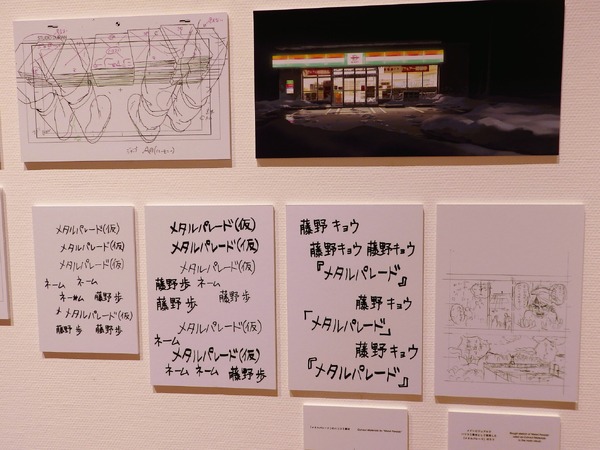 メタルパレード(仮)
メタルパレード(仮)
メタルパレード(仮)
ネーム ネーム
ネーム 藤野 歩
メ メタルパレード(仮)
藤野 歩 藤野 歩
メタルパレード(仮)
メタルパレード(仮)
メタルパレード(仮)
藤野 歩 ネーム
藤野 歩 藤野 歩
メタルパレード(仮)
ネーム
メタルパレード(仮)
ネーム ネーム 藤野 歩
藤野 キョウ
藤野キョウ 藤野キョウ
『メタルパレード』
藤野 キョウ
「メタルパレード」
藤野 キョウ
『メタルパレード』